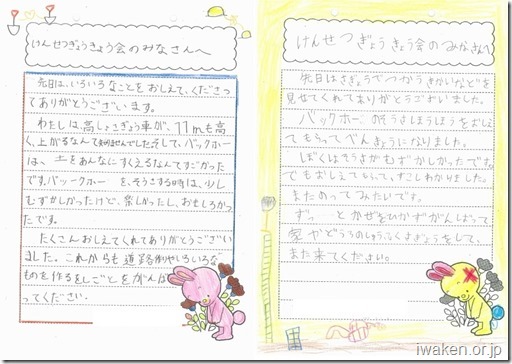 けんせつぎょうきょう会のみなさんへ
先日は、いろいろなことをおしえて、くださっ
てありがとうございます。
わたしは、高しょさぎょう車が、11mも高
く、上がるなんて知りませんでした。そして、バックホー
は、土をあんなにすくえるなんてすごかった
です。バックホーを、そうこうする時は、少し
むずかしかったけど、楽しかったし、おもしろかっ
たです。
たくさんおしえてくれてありがとうございい
ました。これからも道路や いろいろな
ものを作るしごとをがんば
ってください。
けんせつぎょうきょう会のみなさんへ
先日はさぎょうでつかうきかいなどを
見せてくれてありがとうございました。
バックホーのそうさほうほうをおしえ
てもらってべんきょうになりました。
ぼくはそうさがむずかしかったです。
でもおしえてもらって、すこしわかりました。
またのってみたいです。
ずっとかぜをひかずがんばって
家やどうろのしゅうふくさぎょうをして、
また来てください。
iwaken.or.jp